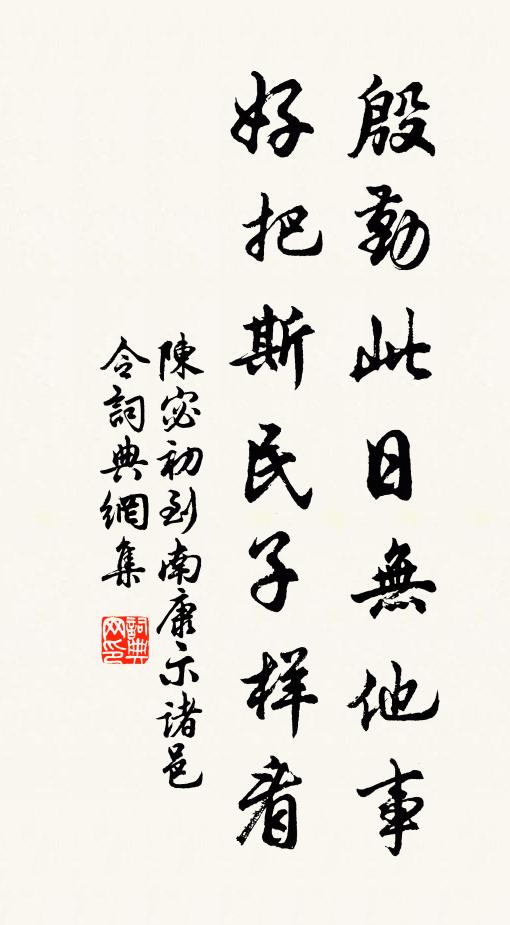 殷勤此日無他事
好把斯民子样看
陳宓初到南康示諸邑
令詞典網集
詞典
网印